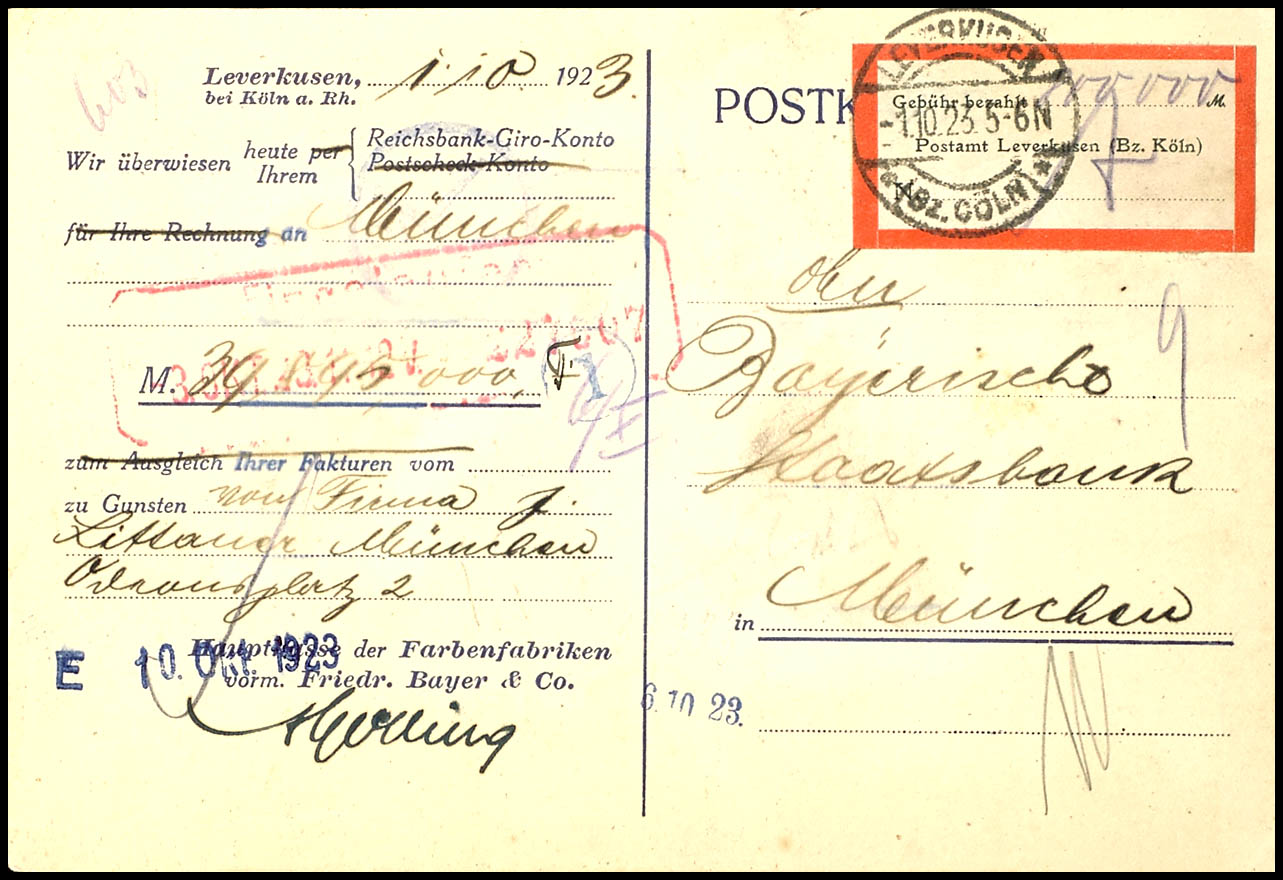 603
Leverkusen, 1.10. 1923.
bei Köln a. Rh.
Wir überwiesen heute per Reichsbank-Giro-Konto
Ihrem Postscheck-Konto
für Ihre Rechnung an München
Eingelaufen
-3.
M. 39 000 F.
1
zum Ausgleich Ihrer Fakturen vom
zu Gunsten von Firma J.
Littauer München
Odeonsplatz 2
Hauptkasse der Farbenfabriken
vorm. Friedr. Bayer & Co.
E 10. Okt. 1923
6.10 23.
POSTK
LEVERKUSEN
-1.10.23.5-6N
(BZ. CÖLN)
Gebühr bezahlt 200 000 M.
Postamt Leverkusen (Bz. Köln)
9
Bayerische
Staatsbank
in München